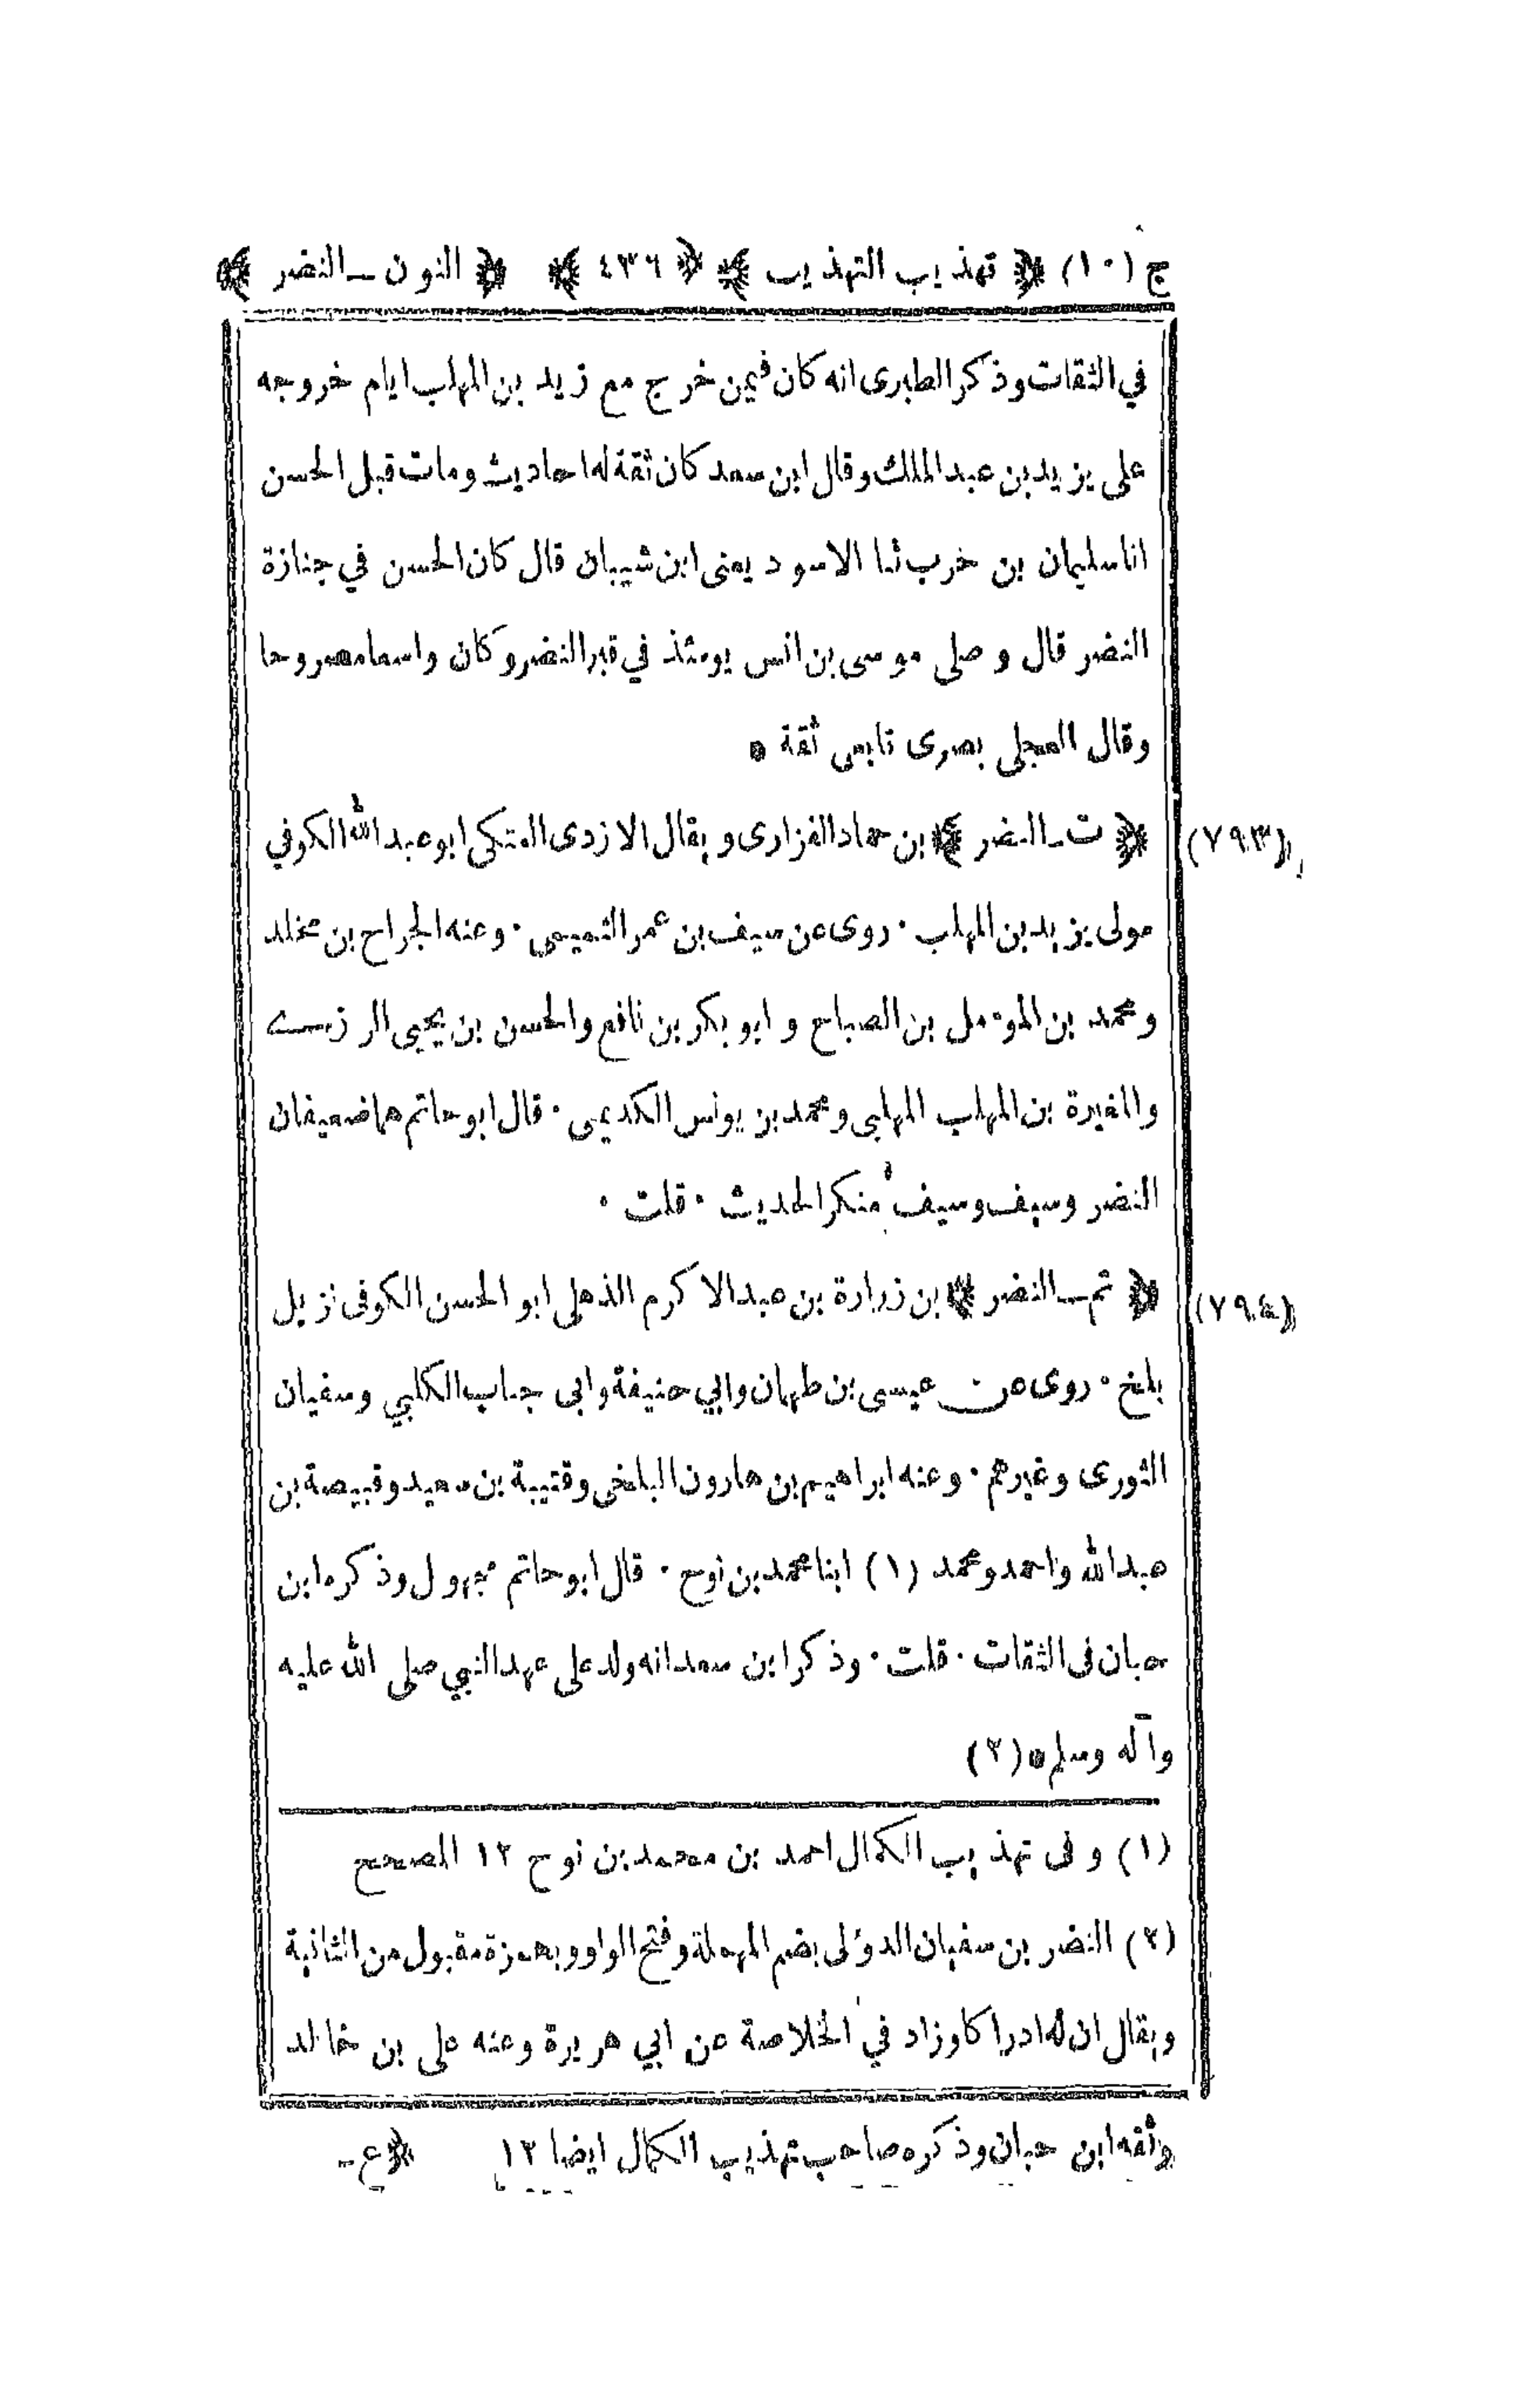 ج (١٠) ﴿ تهذيب التهذيب ﴾ ﴿ ٤٣٦ ﴾ ﴿ النون ــ النضر ﴾
في الثقات وذكر الطبرى انه كان فيمن خرج مع زيد بن المهلب ايام خروجه
على يزيد بن عبد الملك وقال ابن سعد كان ثقة له احاديث ومات قبل الحسن
انا سليمان بن خرب ثنا الاسود يعنى ابن شيبان قال كان الحسن في جنازة
النضر قال وصلى موسى بن انس يومئذ في قبر النضر وكان واسعا مصروحا
وقال العجلى بصرى تابعى ثقة •
(٧٩٣) ﴿ ت ــ النضر ﴾ بن حماد الفزارى ويقال الازدى العتكى ابو عبد الله الكوفي
مولى يزيد بن المهلب · روى عن سيف بن عمر التميمى · وعنه الجراح بن مخلد
ومحمد بن المومل بن الصباح وابو بكر بن نافع والحسن بن يحيى الرزى
والمغيرة بن المهلب المهلبى ومحمد بن يونس الكديمى · قال ابو حاتم هما ضعيفان
النضر وسيف وسيف منكر الحديث · قلت ·
(٧٩٤) ﴿ تم ــ النضر ﴾ بن زرارة بن عبد الاكرم الذهلى ابو الحسن الكوفى نزيل
بلخ · روى عن عيسى بن طهمان وابي حنيفة وابى جناب الكلبي وسفيان
الثورى وغيرهم · وعنه ابراهيم بن هارون البلخى وقتيبة بن سعيد وقبيصة بن
عبد الله واحمد ومحمد (١) ابنا محمد بن نوح · قال ابو حاتم مجهول وذكره ابن
حبان فى الثقات · قلت · وذكر ابن سعد انه ولد على عهد النبي صلى الله عليه
وآله وسلم • (٢)
(١) وفى تهذيب الكمال احمد بن محمد بن نوح ١٢ المصحح
(٢) النضر بن سفيان الدؤلى بضم المهملة وفتح الواو وبهمزة مقبول من الثانية
ويقال ان له ادراكا وزاد في الخلاصة عن ابي هريرة وعنه على بن خالد
وثقه ابن حبان وذكره صاحب تهذيب الكمال ايضا ١٢ ﴿ ع ــ